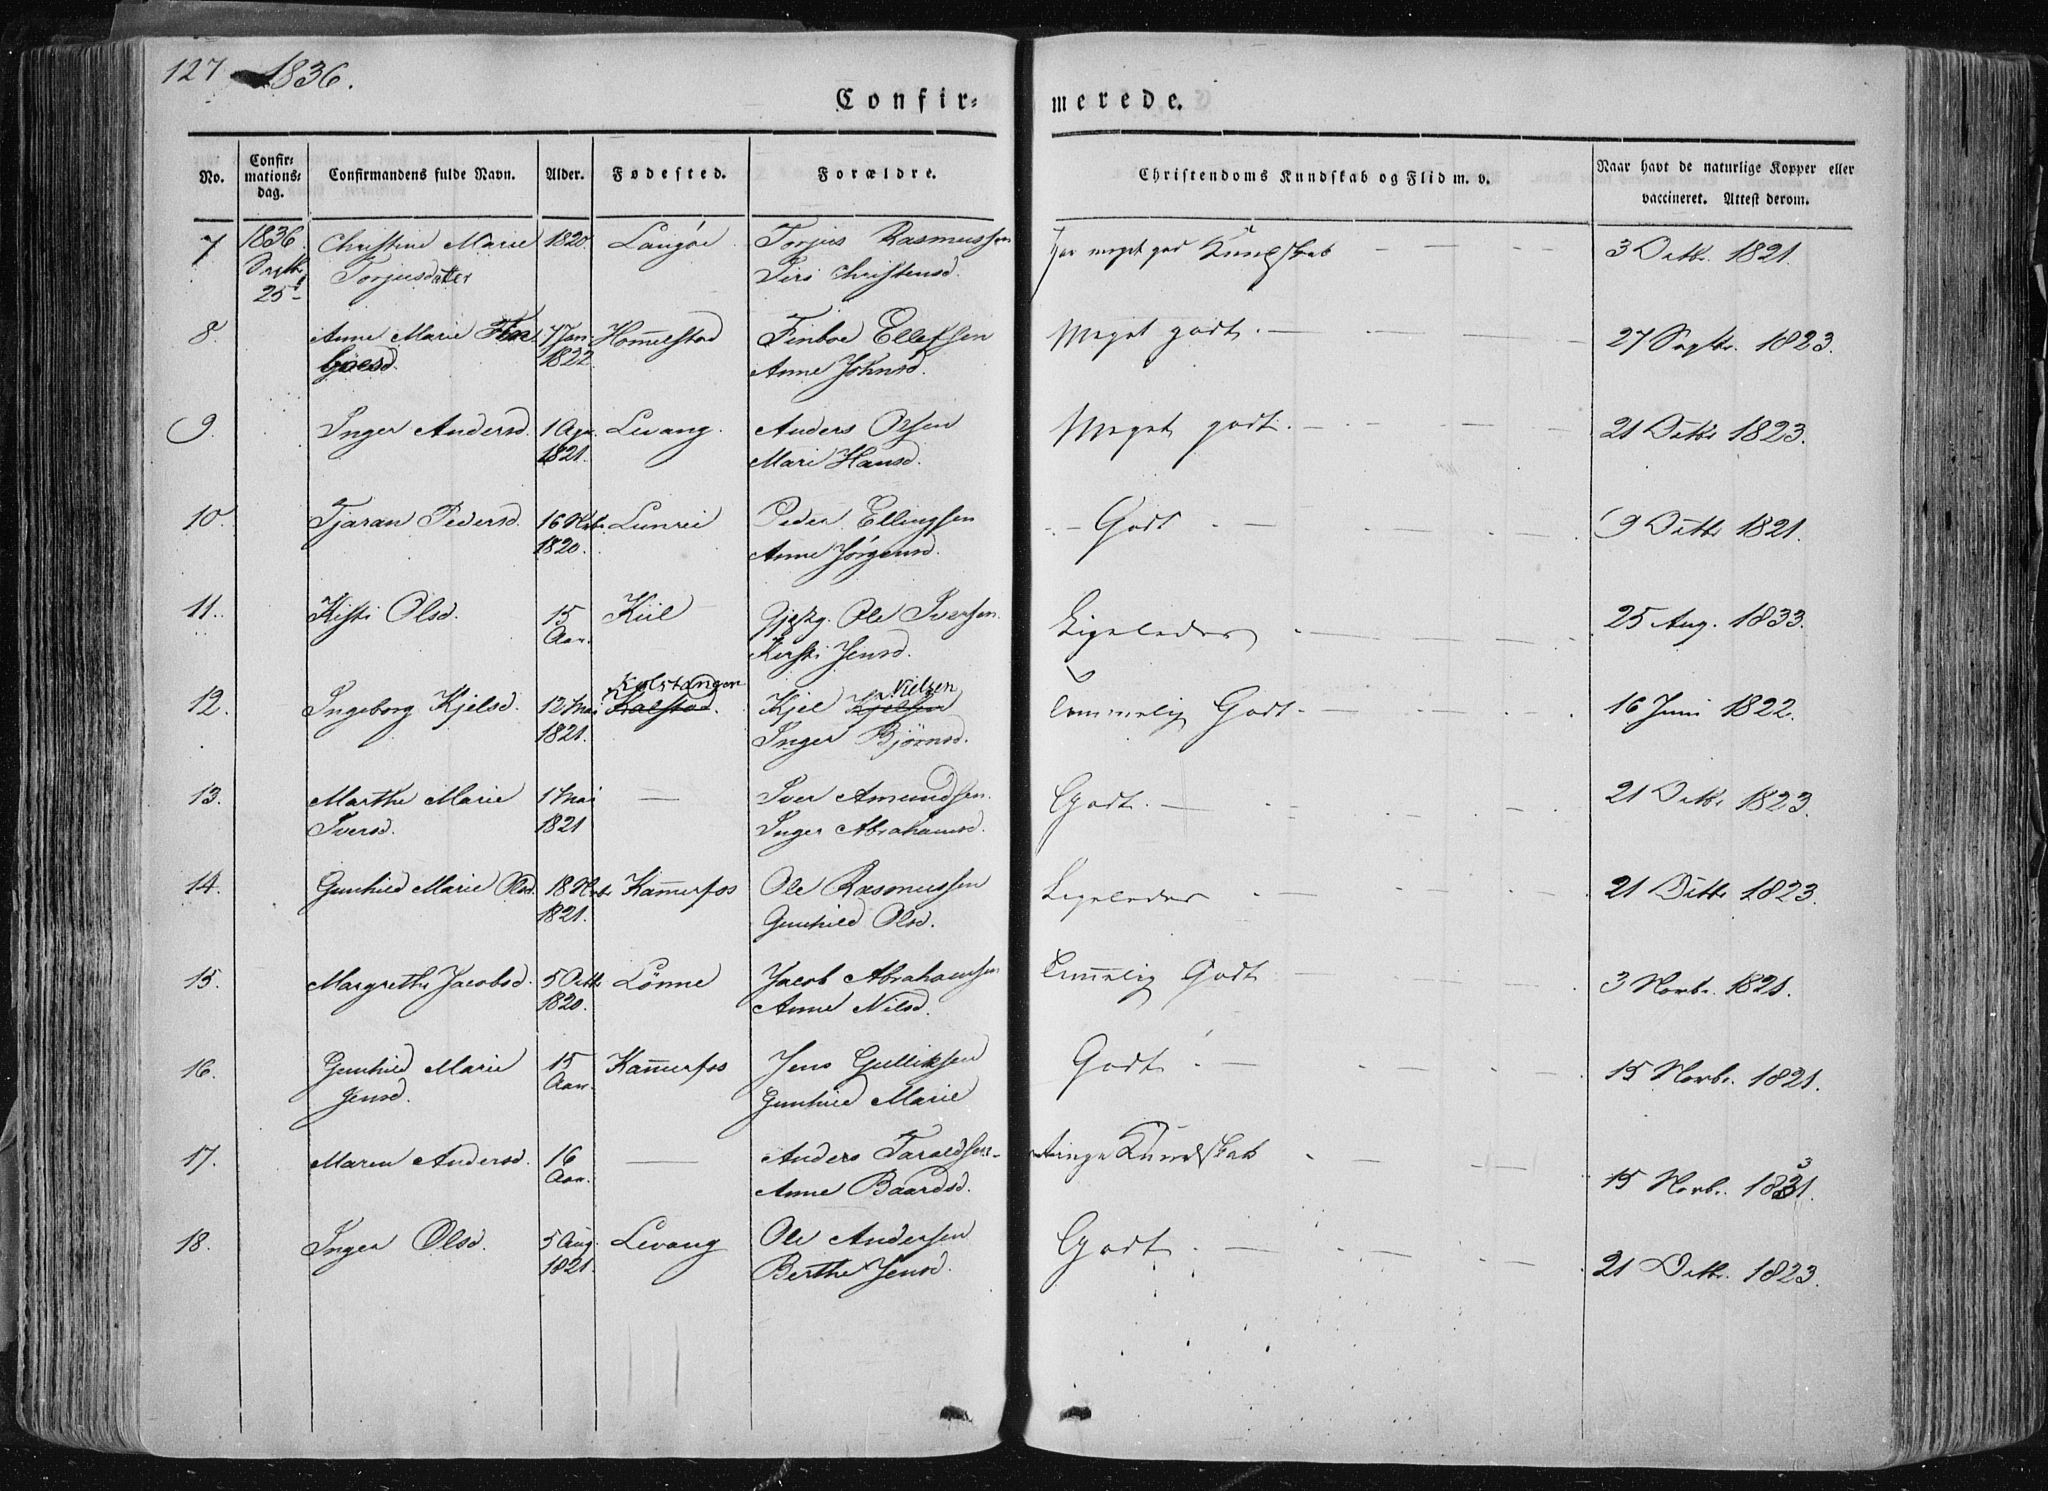 127 1836.
Confir- merede.
No. Confirmations- dag. Confirmandens fulde Navn. Alder. Fødested. Forældre. Christendoms Kundskab og Flid m. v. Naar havt de naturlige Kopper eller vaccineret. Attest derom.
7 1836. Christine Marie 1820. Langøe Torjus Rasmussen Har meget god Kundskab 3 Octbr. 1821.
Septbr. Torjusdatter Siri Christensd.
25
8. Anne Marie Fin 7 Jan. Homelstad Finboe Ellefsen Meget godt. 27 Septbr. 1823.
boesd. 1822. Anne Johnsd.
9. Inger Andersd. 1 Apr. Levang. Anders Olsen Meget godt. 21 Octbr 1823.
1821. Mari Hansd.
10. Tjaran Pedersd. 16 Novbr. Lunrei Peder Ellingsen Godt 9 Octbr 1821.
1820. Anne Jørgensd.
11. Kisti Olsd. 15 Kiil Ole Iversen Ligeledes 25 Aug. 1833.
Aar. Kirsti Jensd.
Kolstangen Nielsen
12. Ingeborg Kjelsd. 12 Mai Kalstad. Kjel Kjelsen Temmelig Godt 16 Juni 1822.
1821. Inger Bjørnsd.
13. Marthe Marie 1 Mai — Iver Amundsen. Godt. 21 Octbr 1823.
Iversd. 1821 Inger Abrahamsd.
14. Gunhild Marie Olsd. 18 Novbr Kamerfos Ole Rasmussen Ligeledes 21 Octbr. 1823.
1821. Gunhild Olsd.
15. Margrethe Jacobsd. 5 Octbr Lønne Jacob Abrahamsen Temelig Godt 3 Novbr. 1821.
1820. Anne Nilsd.
16. Gunhild Marie 15 Kamerfos Jens Gulliksen Godt 15 Novbr. 1821.
Jensd. Aar. Gunhild Marie
17. Maren Andersd. 16 — Anders Taraldsen Ringe Kundskab 15 Novbr. 1831.
Aar. Anne Baardsd.
18. Inger Olsd. 5 Aug. Levang Ole Andersen Godt 21 Octbr. 1823.
1821. Berthe Jensd.